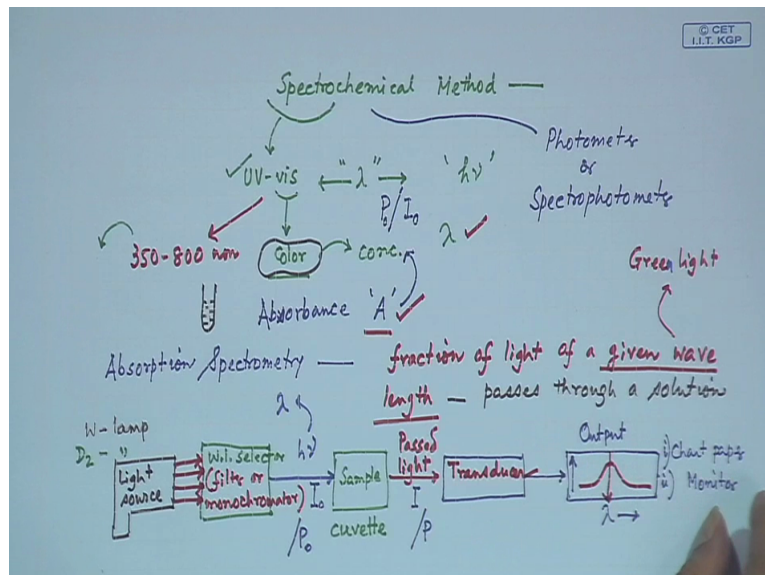 © CET
I.I.T. KGP
Spectrochemical Method —
Photometry
or
Spectrophotometry
UV-vis ← "λ" → 'hν'
P₀/I₀
λ
350-800 nm
Color
conc.
Green light
Absorbance 'A'
Absorption Spectrometry — fraction of light of a given wave
length — passes through a solution
W-lamp
D₂ - "
Light source
W.l. selector
(filter or
monochromator)
λ
hν
I₀
/P₀
Sample
cuvette
Passed
light
I
/P
Transducer
Output
λ →
i) Chart paper
ii) Monitor